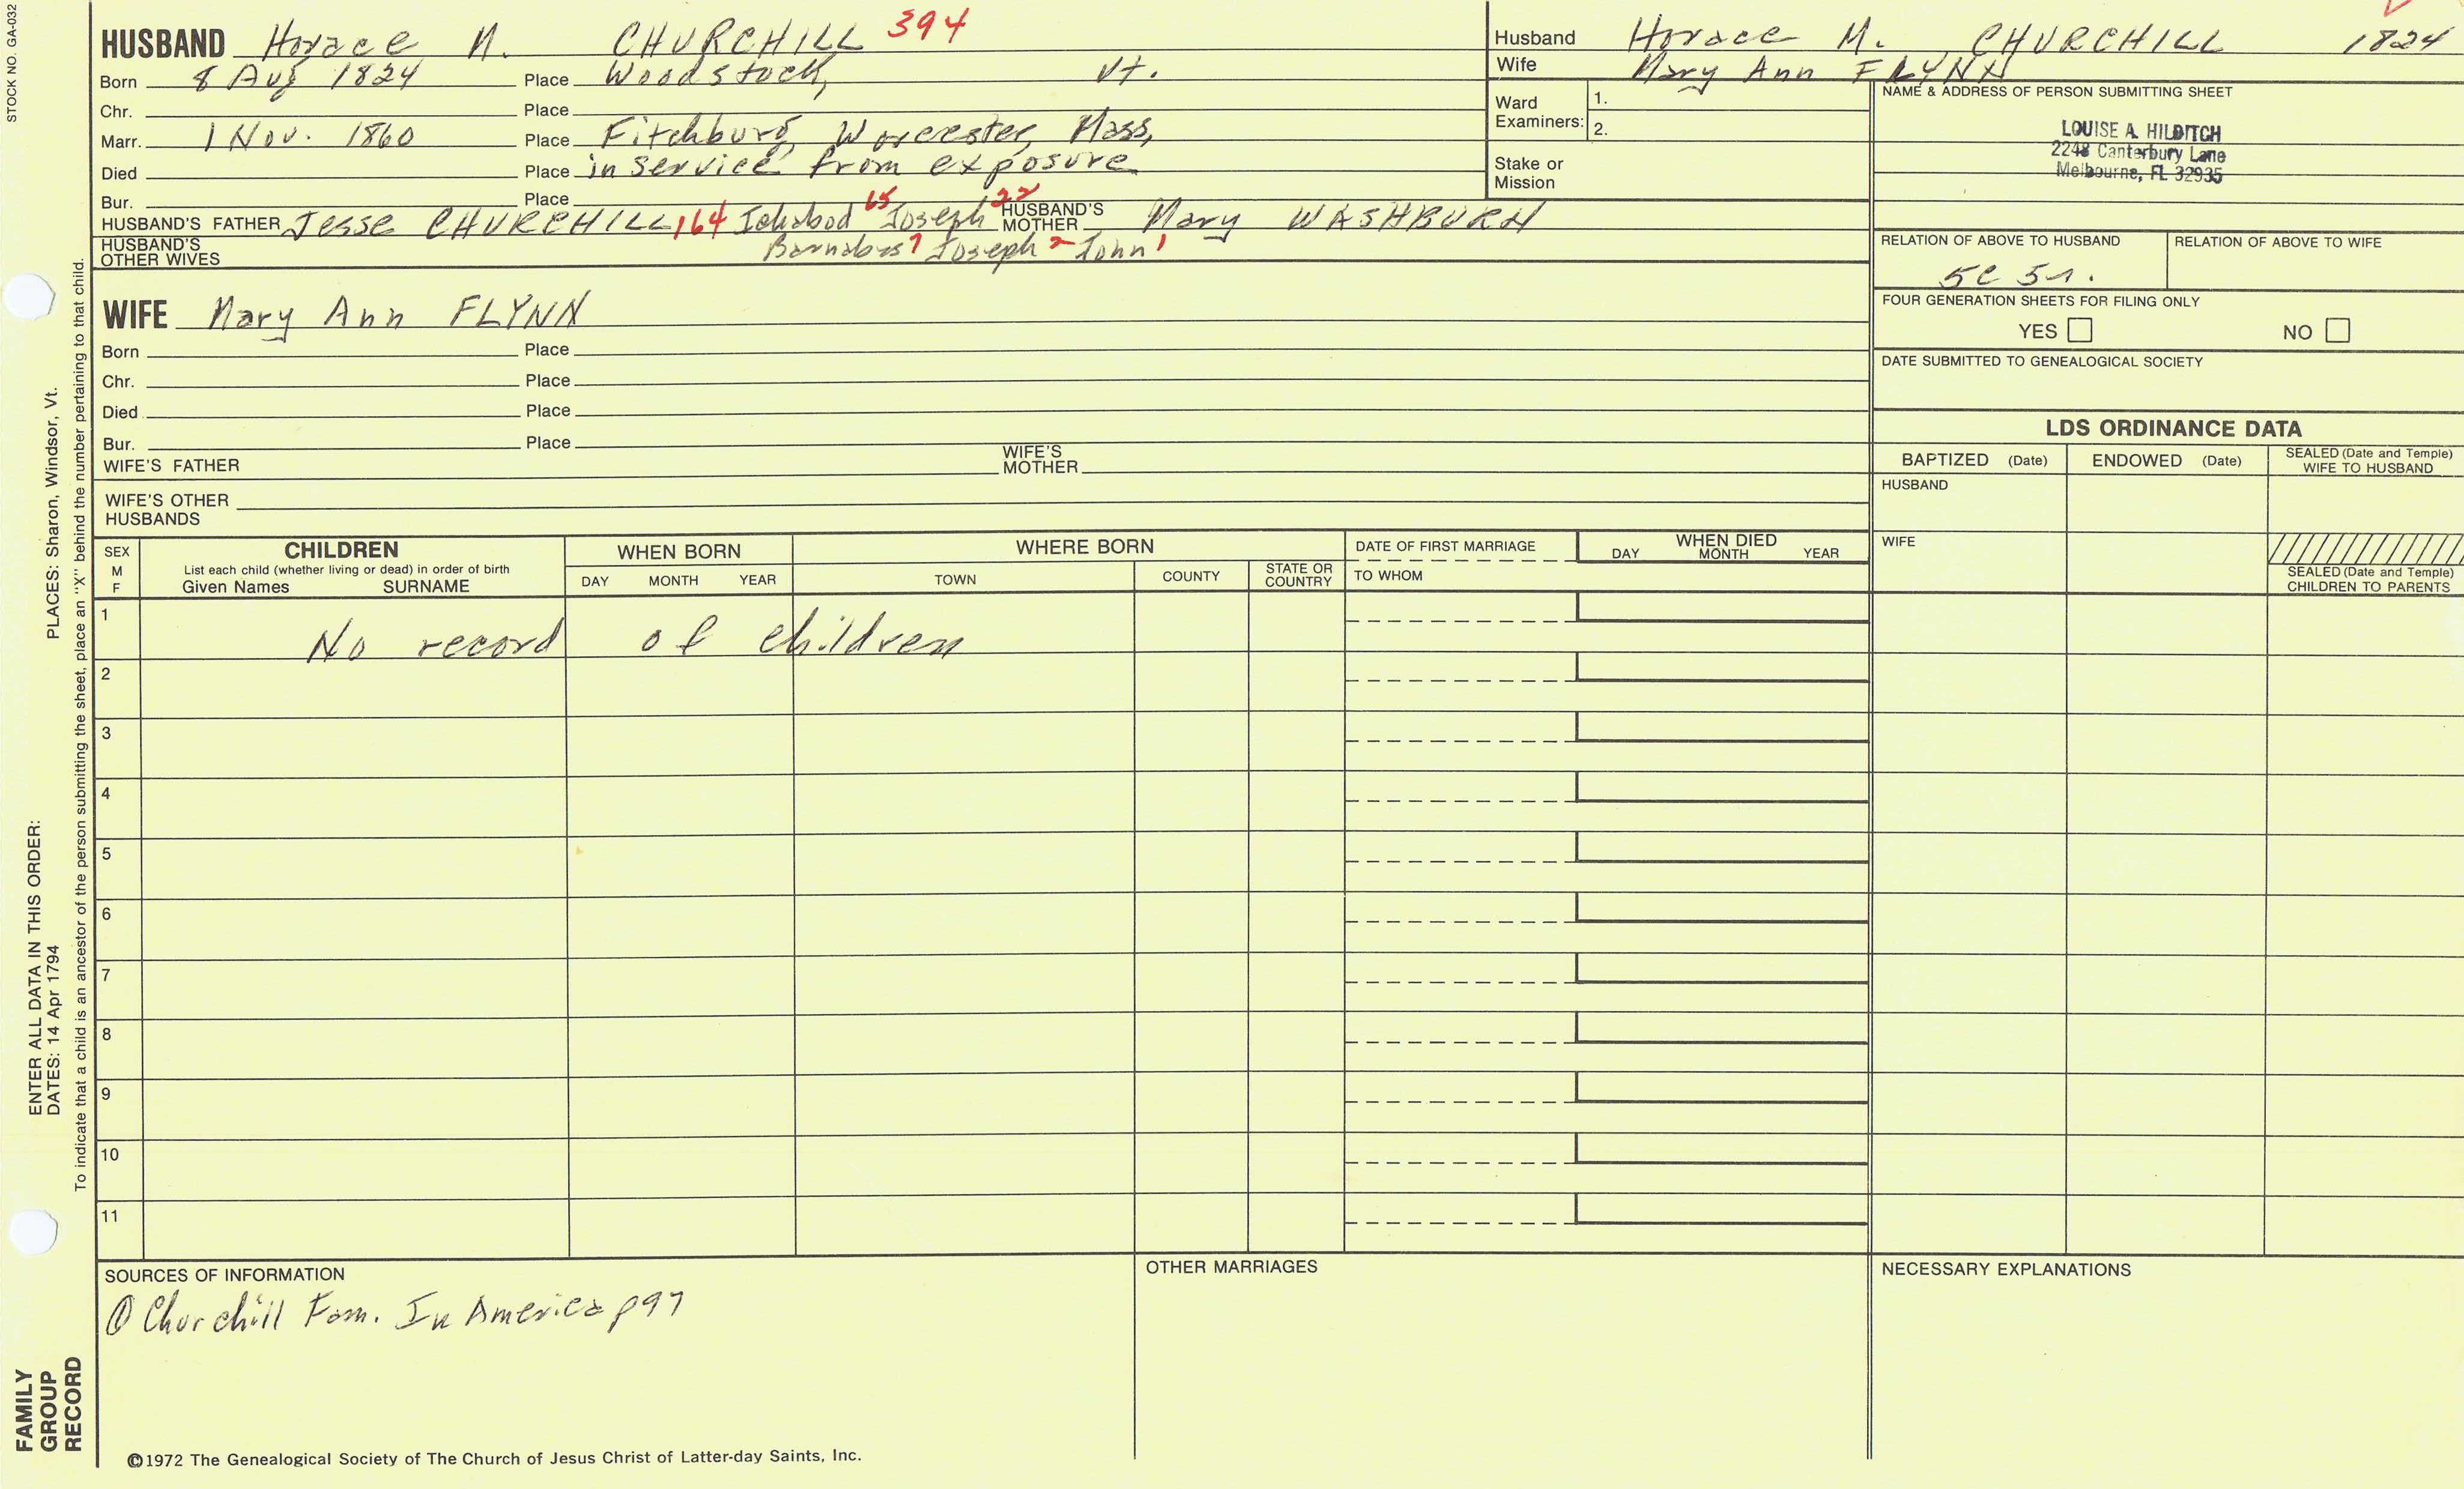 STOCK NO. GA-032
HUSBAND Horace M. CHURCHILL 394
Born 8 Aug 1824 Place Woodstock, Vt.
Chr. Place
Marr. 1 Nov. 1860 Place Fitchburg, Worcester, Mass,
Died Place in service from exposure
Bur. Place
HUSBAND'S FATHER Jesse CHURCHILL 164 Ichabod 65 Joseph 22 HUSBAND'S MOTHER Mary WASHBURN
HUSBAND'S OTHER WIVES Barnabas 7 Joseph 2 John 1
Husband Horace M. CHURCHILL 1824
Wife Mary Ann FLYNN
Ward Examiners: 1.
2.
Stake or Mission
NAME & ADDRESS OF PERSON SUBMITTING SHEET
LOUISE A. HILDITCH
2248 Canterbury Lane
Melbourne, FL 32935
RELATION OF ABOVE TO HUSBAND RELATION OF ABOVE TO WIFE
5C 5r.
FOUR GENERATION SHEETS FOR FILING ONLY
YES NO
DATE SUBMITTED TO GENEALOGICAL SOCIETY
WIFE Mary Ann FLYNN
Born Place
Chr. Place
Died Place
Bur. Place
WIFE'S FATHER WIFE'S MOTHER
WIFE'S OTHER HUSBANDS
LDS ORDINANCE DATA
BAPTIZED (Date) ENDOWED (Date) SEALED (Date and Temple) WIFE TO HUSBAND
HUSBAND
WIFE
SEALED (Date and Temple) CHILDREN TO PARENTS
SEX M F
CHILDREN
List each child (whether living or dead) in order of birth
Given Names SURNAME
WHEN BORN
DAY MONTH YEAR
WHERE BORN
TOWN COUNTY STATE OR COUNTRY
DATE OF FIRST MARRIAGE
TO WHOM
WHEN DIED
DAY MONTH YEAR
1 No record of children
2
3
4
5
6
7
8
9
10
11
SOURCES OF INFORMATION
① Churchill Fam. In America p97
OTHER MARRIAGES
NECESSARY EXPLANATIONS
©1972 The Genealogical Society of The Church of Jesus Christ of Latter-day Saints, Inc.
FAMILY GROUP RECORD
ENTER ALL DATA IN THIS ORDER:
DATES: 14 Apr 1794
PLACES: Sharon, Windsor, Vt.
To indicate that a child is an ancestor of the person submitting the sheet, place an "X" behind the number pertaining to that child.